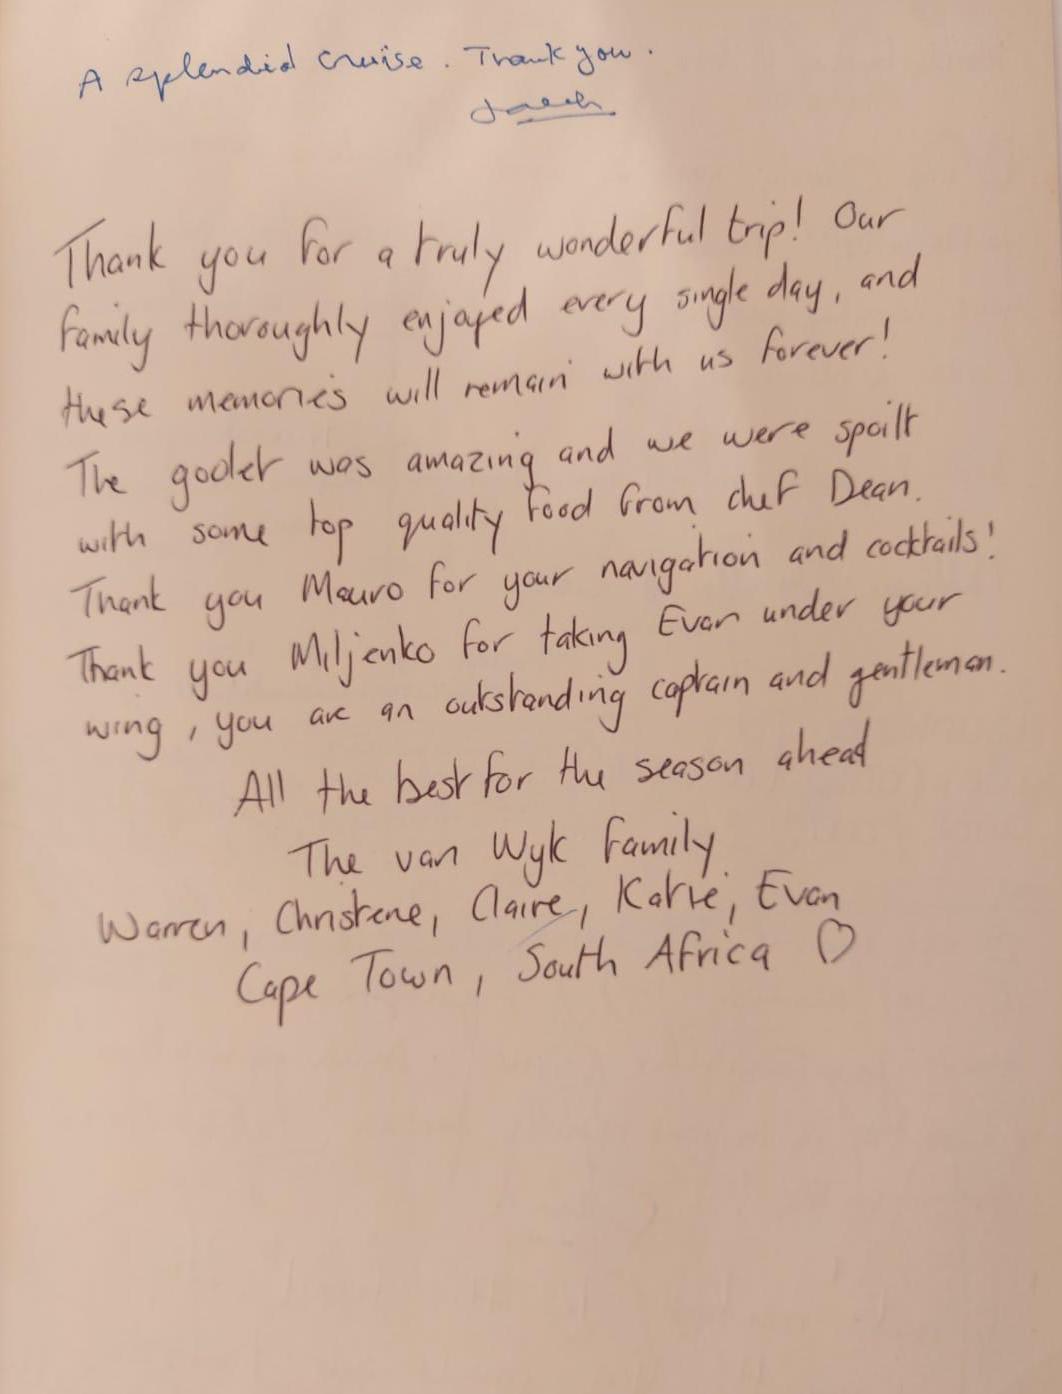 A splendid cruise. Thank you.
Thank you for a truly wonderful trip! Our
family thoroughly enjoyed every single day, and
these memories will remain with us forever!
The goolet was amazing and we were spoilt
with some top quality food from chef Dean.
Thank you Mauro for your navigation and cocktails!
Thank you Miljenko for taking Evan under your
wing, you are an outstanding captain and gentleman.
All the best for the season ahead
The van Wyk family
Warren, Christene, Claire, Katie, Evan
Cape Town, South Africa ♡